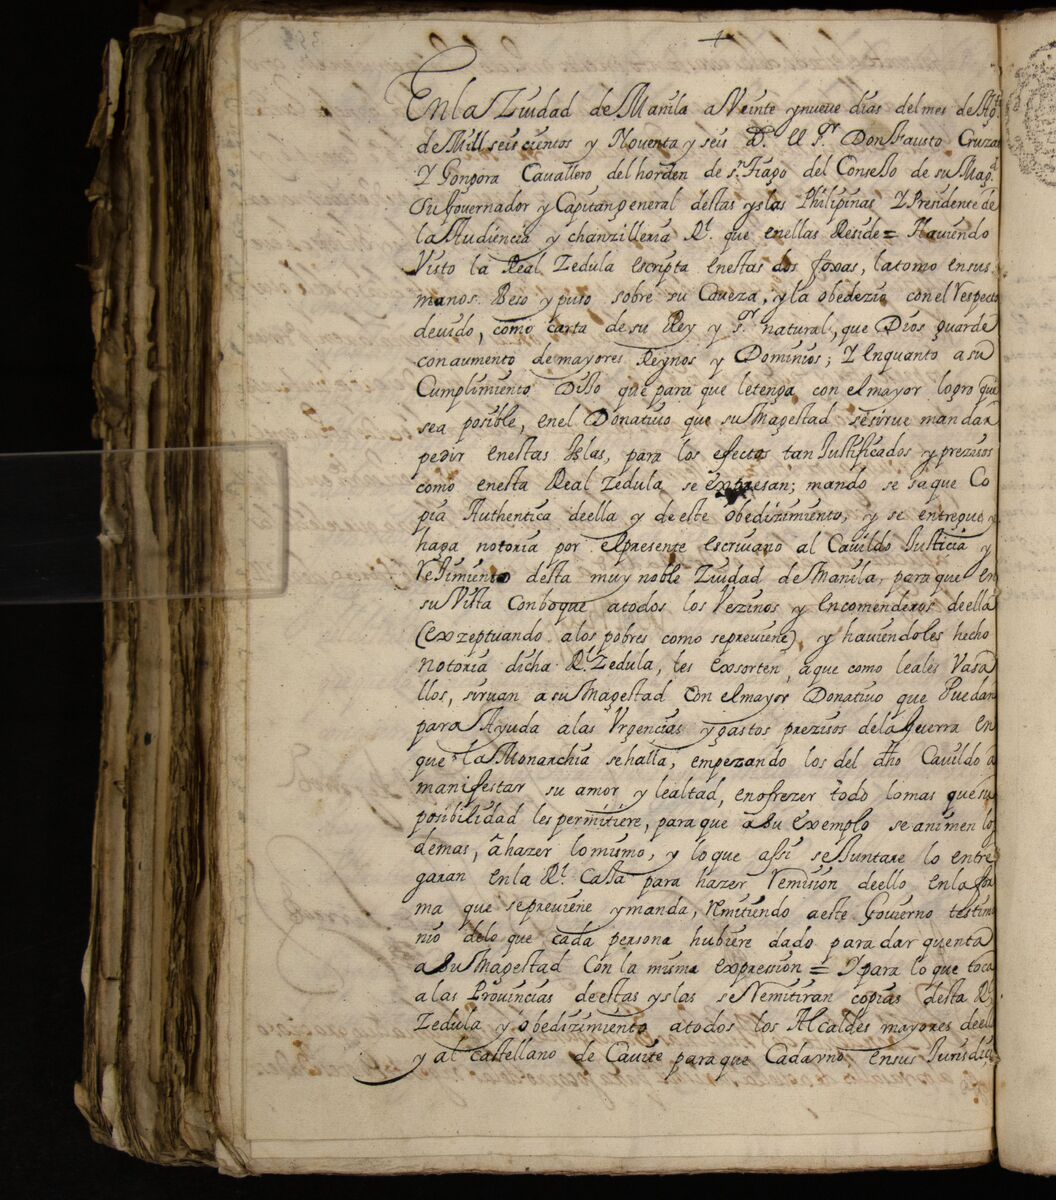 En la Ziudad de Manila a Veinte y nueve dias del mes de Agto
de Mill seis cientos y Noventa y seis El Sr Don Fausto Cruzat
Y Gongora Cavallero del horden de sn tiago del Consejo de su Magd
Su governador y Capitan general destas yslas Philipinas Y Presidente de
la Audiencia y chanzilleria Rl que en ellas Reside = Haviendo
Visto la Real Zedula escripta en estas dos foxas, la tomo en sus
manos Beso y puso sobre su Caveza, y la obedezio con el respecto
devido, como carta de su Rey y sr natural, que Dios guarde
con aumento de mayores Reynos y Dominios; Y en quanto a su
Cumplimiento Dijo que para que le tenga con el mayor logro que
sea posible, en el Donativo que su Magestad se sirve mandar
pedir en estas Islas, para los efectos tan Justificados y prezisos
como en esta Real Zedula se expresan; mando se saque Co
pia Authentica de ella y de este obedizimiento, y se entregue y
haga notoria por el presente escrivano al Cavildo Justicia y
rejimiento desta muy noble Ziudad de Manila, para que en
su Vista Conboque a todos los Vezinos y encomenderos de ella
(exzeptuando a los pobres como se previene) y haviendoles hecho
notoria dicha Rl Zedula, les exsorten, a que como leales Vasa
llos, sirvan a su Magestad con el mayor Donativo que Puedan
para Ayuda a las Urgencias y gastos prezisos de la guerra en
que la Monarchia se halla, empezando los del dho Cavildo a
manifestar su amor y lealtad, en ofrezer todo lo mas que su
posibilidad les permitiere, para que a su exemplo se animen los
demas, a hazer lo mismo, y lo que assi se Juntare lo entre
garan en la Rl Caja para hazer remision de ello en la for
ma que se previene y manda, remitiendo a este Govierno testimo
nio de lo que cada persona hubiere dado para dar quenta
a su Magestad con la misma expresion = Y para lo que toca
a las Provincias de estas yslas se remitiran copias desta Rl
Zedula y obedizimiento a todos los Alcaldes mayores de ellas
y al castellano de Cavite para que Cada vno en sus Jurisdic